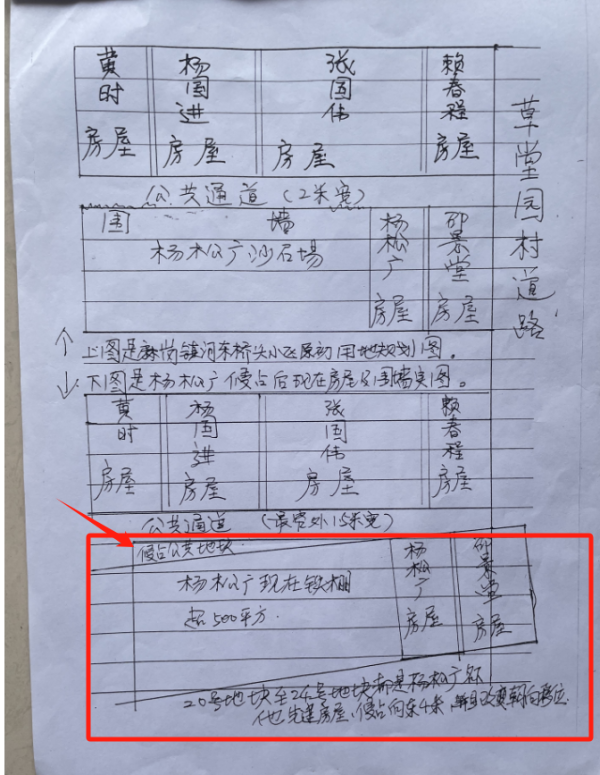 黄时房屋
杨国进房屋
张国伟房屋
赖春程房屋
草堂园村道路
公共通道(2米宽)
围墙
杨松广沙石場
杨松广房屋
邵景堂房屋
↑上图是麻岗镇河东桥头小区原动用地规划图。
↓下图是杨松广侵占后现在房屋及围墙实图。
黄时房屋
杨国进房屋
张国伟房屋
赖春程房屋
公共通道(最宽外15米宽)
侵占公共地块
杨松广现在铁棚
起500平方.
杨松广房屋
邵景堂房屋
20号地块至24号地块都是杨松广所
他先建房屋、侵占向东4米,并且改变朝向